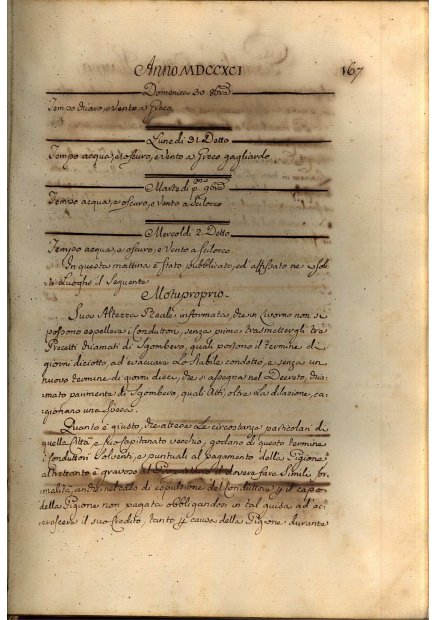 Anno MDCCXCI
167
Domenica 30. 8bre
Tempo chiaro, e Vento a Greco
Lunedi 31. Detto
Tempo acqua, e oscuro, e Vento a Greco gagliardo
Martedi p.mo 9bre
Tempo acqua, e oscuro, e Vento a Scilocco
Mercoldi 2. Detto
Tempo acqua, e oscuro, e Vento a Scilocco
In questa mattina è stato pubblicato, ed affissato ne i soli-
ti Luoghi il seguente
Motuproprio
Sua Altezza Reale informata, che in Livorno non si
possono espellere i Conduttori, senza prima trasmettergli tre
Precetti chiamati di Sgombero, quali portono il termine di
giorni diciotto, ad evacuare Lo Stabile condotto, e senza un
nuovo termine di giorni dieci, che si assegna nel Decreto, chia-
mato parimente di Sgombero, quali Atti, oltre La dilazione, ca-
gionano una spesa.
Quanto è giusto, che attese Le circostanze particolari di
quella Città e suo Capitanato vecchio, godano di questo termine
i Conduttori Solventi, e puntuali al pagamento della Pigione,
altrettanto è gravoso al Proprietario il dovere fare Simili for-
malità, anche nel caso di espulsione del Conduttore p il capo
della Pigione non pagata obbligandosi in tal guisa ad ac-
crescere il suo Credito, tanto p causa della Pigione durante